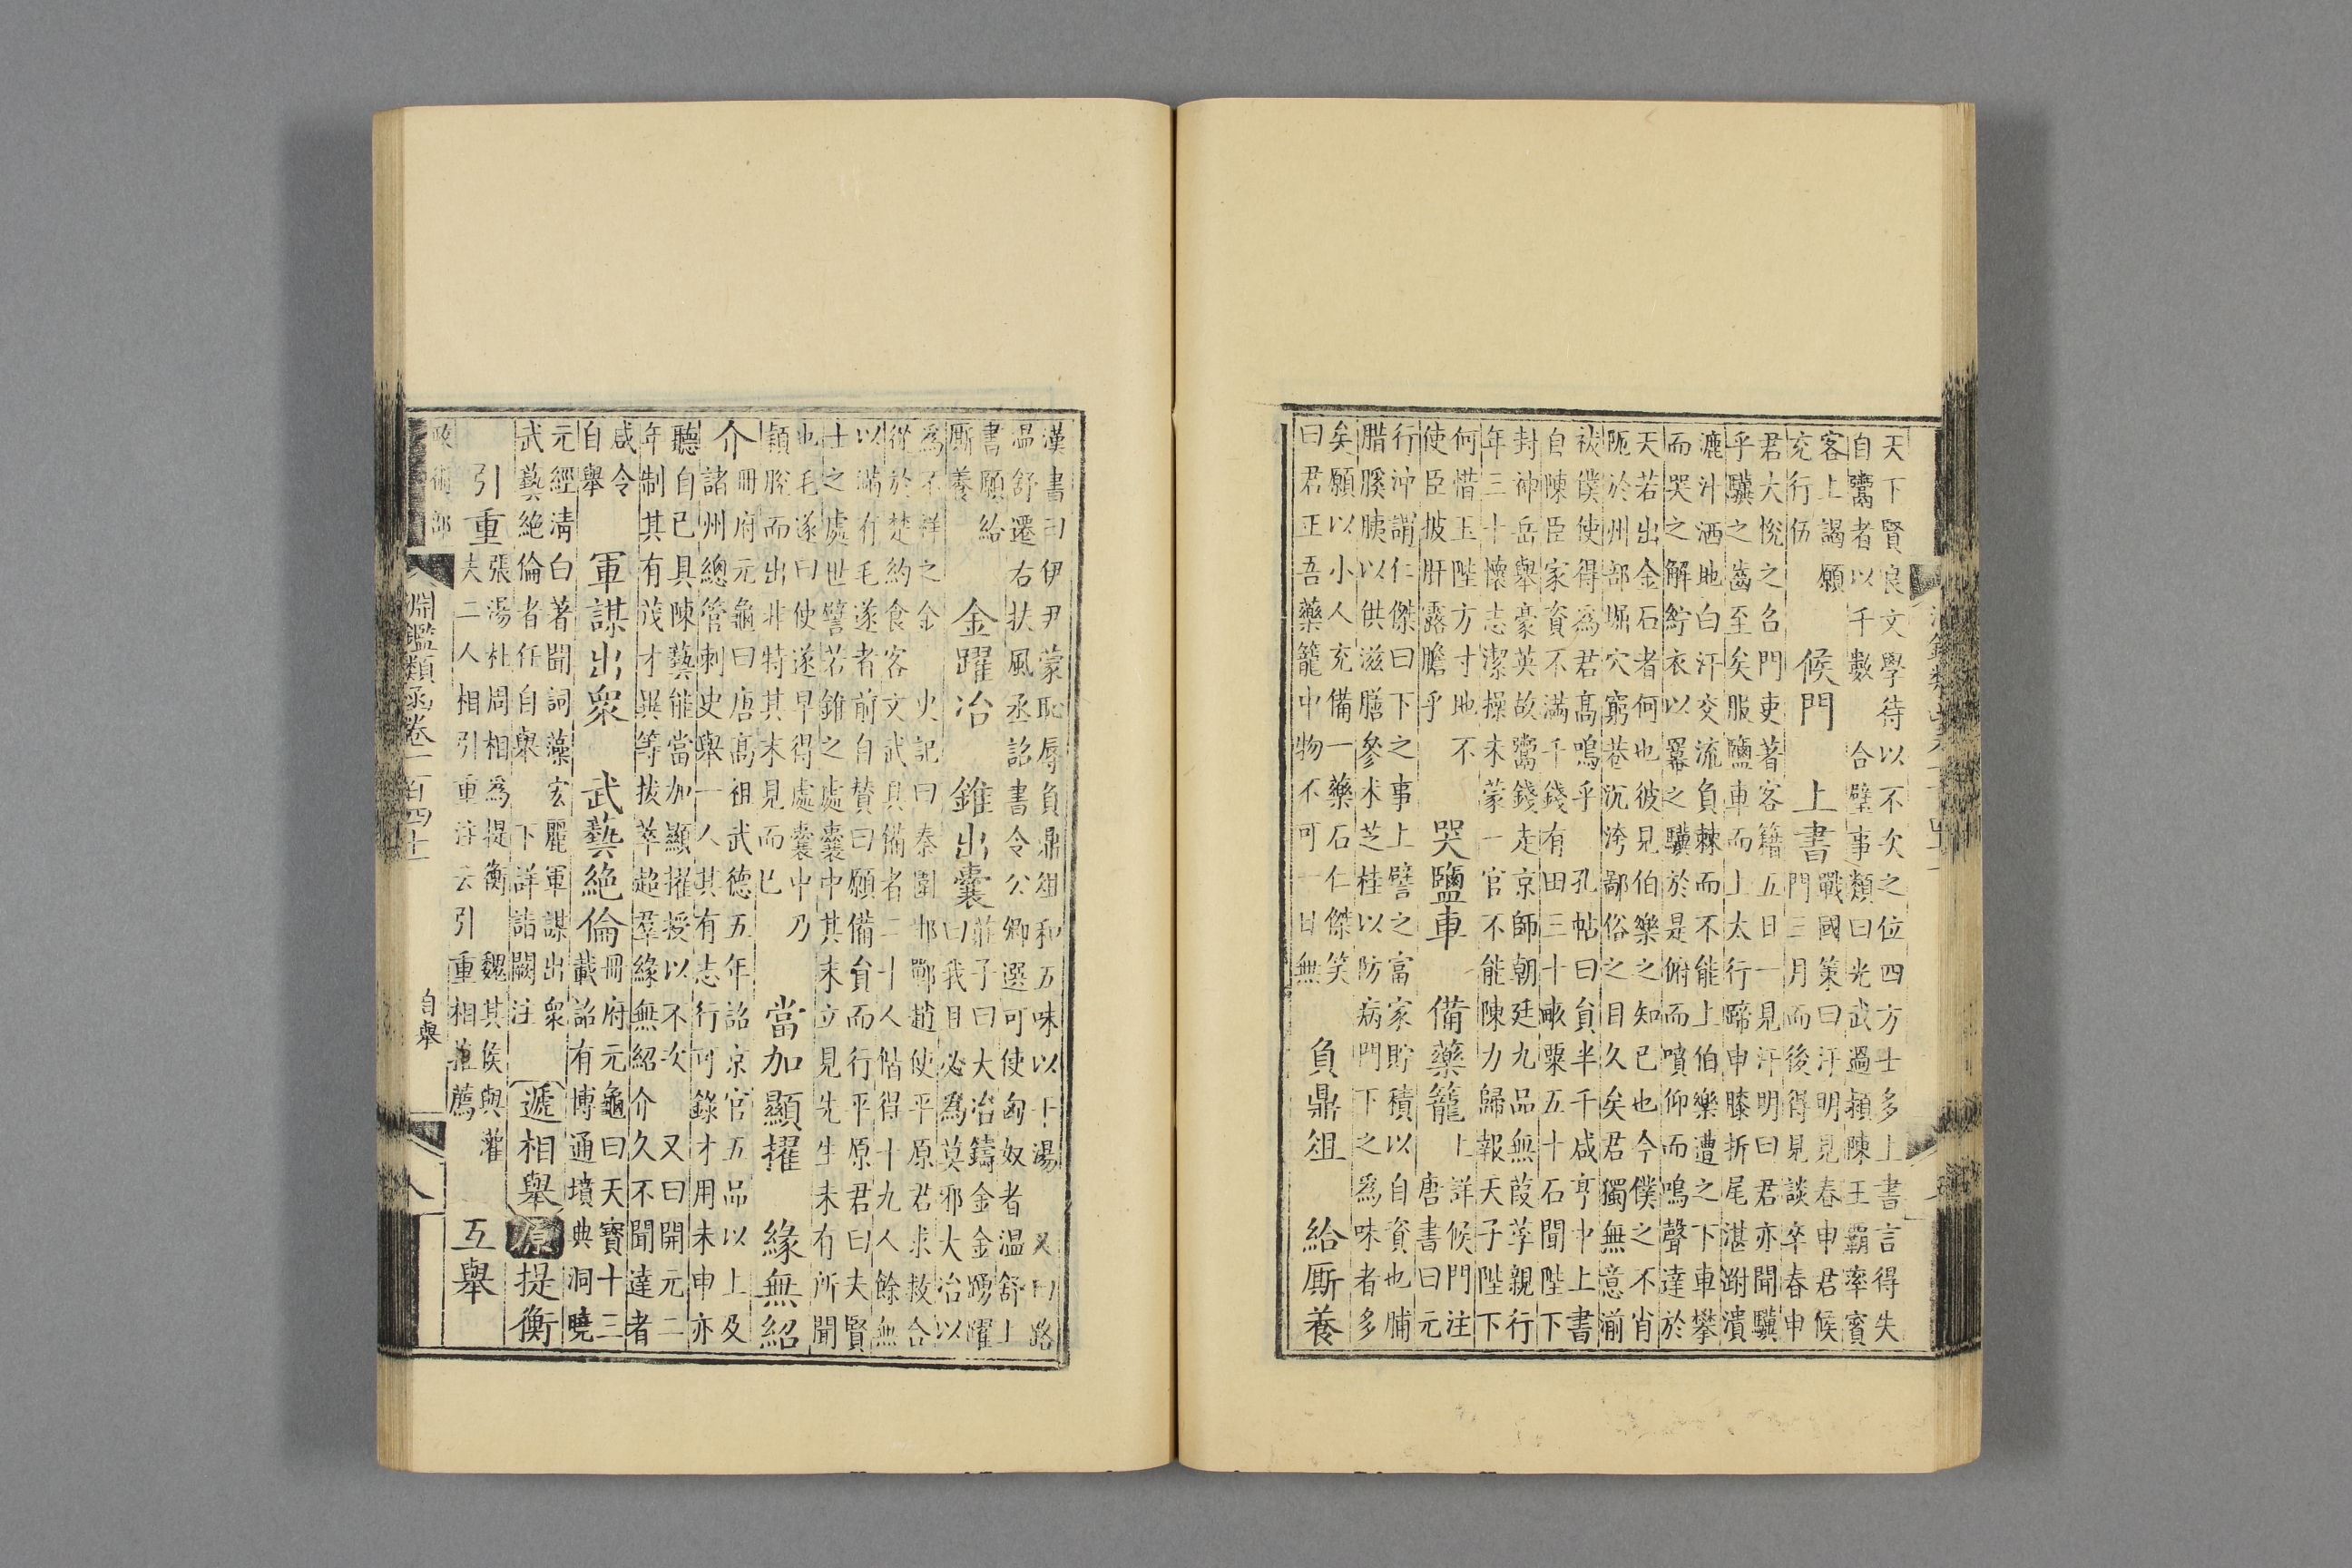 天下賢良文學待以不次之位四方士多上書言得失
自鬻者以千數　合璧事類曰光武過潁陳王霸率賓
客上謁願　候門　上書　戰國策曰汗明見春申君候
充行伍　門三月而後得見談卒春申
君大悅之召門吏著客籍五日一見汗明曰君亦聞驥
乎驥之齒至矣服鹽車而上太行蹄申膝折尾湛胕潰
漉汁洒地白汗交流負棘而不能上伯樂遭之下車攀
而哭之解紵衣以羃之驥於是俯而噴仰而鳴聲達於
天若出金石者何也彼見伯樂之知已也今僕之不肖
阨於州部堀穴窮巷沉洿鄙俗之目久矣君獨無意湔
祓僕使得爲君髙鳴乎　孔帖曰負半千咸亨中上書
自陳臣家資不滿千錢有田三十畞粟五十石聞陛下
封神岳舉豪英故鬻錢走京師朝廷九品無葭莩親行
年三十懷志潔操未蒙一官不能陳力歸報天子陛下
何惜玉陛方寸地不　哭鹽車　備藥籠　上詳候門注
使臣披肝露膽乎　唐書曰元
行沖謂仁傑曰下之事上譬之富家貯積以自資也脯
腊膎胰以供滋膳參术芝桂以防病門下之爲味者多
矣願以小人充備一藥石仁傑笑
曰君正吾藥籠中物不可一日無　負鼎俎　給厮養
漢書曰伊尹蒙恥辱負鼎俎和五味以干湯　又曰路
温舒遷右扶風丞詔書令公卿選可使匈奴者温舒上
書願給　金躍冶　錐出囊　莊子曰大冶鑄金金踴躍
厮養　曰我且必爲莫邪大冶以
爲不祥之金　史記曰秦圍邯鄲趙使平原君求救合
從於楚約食客文武具備者二十人偕得十九人餘無
以滿有毛遂者前自贊曰願備貟而行平原君曰夫賢
士之處世譬若錐之處囊中其末立見先生未有所聞
也毛遂曰使遂早得處囊中乃
穎脫而出非特其末見而已　當加顯擢　緣無紹
介　冊府元龜曰唐髙祖武德五年詔京官五品以上及
諸州總管刺史舉一人其有志行可錄才用未申亦
聽自已具陳藝能當加顯擢授以不次　又曰開元二
年制其有茂才異等拔萃超羣緣無紹介久不聞達者
咸令　軍謀出衆　武藝絶倫　冊府元龜曰天寶十三
自舉　載詔有博通墳典洞曉
元經淸白著聞詞藻宏麗軍謀出衆
武藝絶倫者任自舉　下詳詣闕注　遞相舉　原　提衡
引重　張湯杜周相爲提衡　魏其侯與灌　互舉
夫二人相引重注云引重相薦
政術部　淵鑑類函卷一百四十一　自舉　八